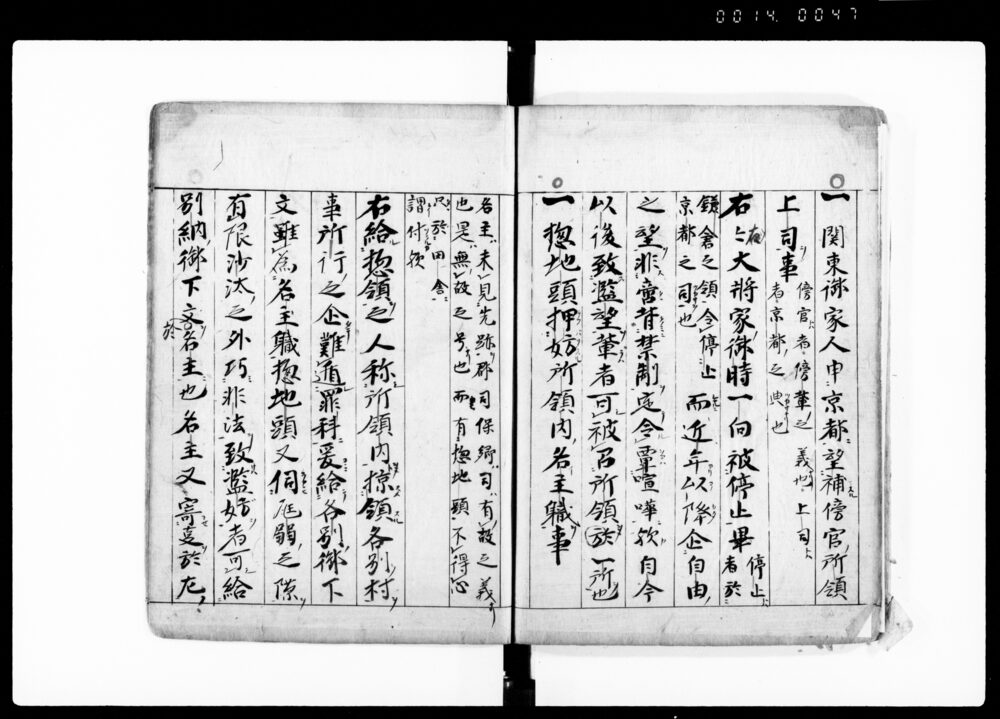 0014. 0047
一 関東御家人申京都望補傍官所領
上司事 傍官者傍輩之義也上司
者京都之
右々大将家御時一向被停止畢 停止者於
鎌倉之領令停止
京都之司也 而近年以降企自由
之望非啻背禁制定令覃喧嘩歟自今
以後致濫望輩者可被召所領於一所也
一 惣地頭押妨所領内名主職事
名主未見先跡郡司保郷司有故之義
也是無故之号也而有惣地頭不得心
只於田舎
謂付歟
右給惣領之人称所領内掠領各別村
事所行之企難遁罪科爰給各別御下
文雖為名主職惣地頭又伺尫弱之隙
有限沙汰之外巧非法致濫妨者可給
別納御下文於名主也名主又寄事於左